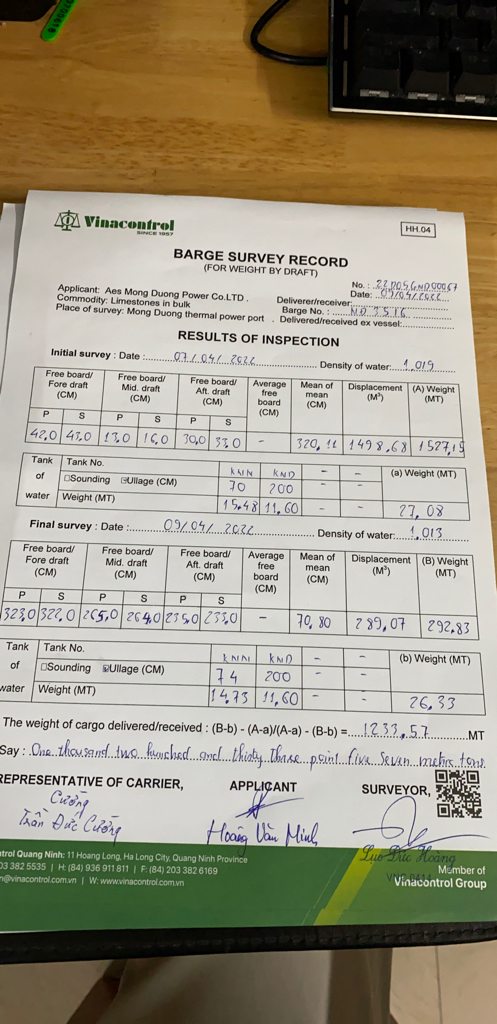 Vinacontrol
SINCE 1957
HH.04
BARGE SURVEY RECORD
(FOR WEIGHT BY DRAFT)
No. :
Applicant: Aes Mong Duong Power Co.LTD . Deliverer/receiver: Date: 09/04/2022
Commodity: Limestones in bulk Barge No. : NĐ 3516
Place of survey: Mong Duong thermal power port . Delivered/received ex vessel:
RESULTS OF INSPECTION
Initial survey : Date : 07/04/2022 Density of water: 1,019
Free board/ Fore draft (CM) Free board/ Mid. draft (CM) Free board/ Aft. draft (CM) Average free board (CM) Mean of mean (CM) Displacement (M³) (A) Weight (MT)
P S P S P S
42,0 43,0 13,0 16,0 30,0 33,0 - 320,11 1498,68 1527,15
Tank of water Tank No. KNN KND - -
□Sounding ☑Ullage (CM) 70 200 - - (a) Weight (MT)
Weight (MT) 15,48 11,60 - - 27,08
Final survey : Date : 09/04/2022 Density of water: 1,013
Free board/ Fore draft (CM) Free board/ Mid. draft (CM) Free board/ Aft. draft (CM) Average free board (CM) Mean of mean (CM) Displacement (M³) (B) Weight (MT)
P S P S P S
323,0 322,0 265,0 264,0 235,0 233,0 - 70,80 289,07 292,83
Tank of water Tank No. KNN KND - -
□Sounding ☑Ullage (CM) 74 200 - - (b) Weight (MT)
Weight (MT) 14,73 11,60 - - 26,33
The weight of cargo delivered/received : (B-b) - (A-a)/(A-a) - (B-b) = 1233,57 MT
Say : One thousand two hundred and thirty three point five seven metric tons.
REPRESENTATIVE OF CARRIER, APPLICANT SURVEYOR,
Cường
Trần Đức Cường Hoàng Văn Minh Lưu Đức Hoàng
ntrol Quang Ninh: 11 Hoang Long, Ha Long City, Quang Ninh Province
03 382 5535 | H: (84) 936 911 811 | F: (84) 203 382 6169
n@vinacontrol.com.vn | W: www.vinacontrol.com.vn
Member of
Vinacontrol Group